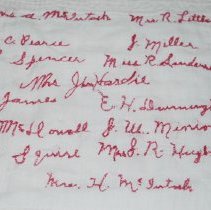 a McIntosh Mrs R. Little
C. Pearce J. Miller
Spencer Miss R. Sanders
Mrs Jas Hardie
James E. H. Dunning
McDowall J. W. Minro
Squire Mrs J. R. Hugh
Mrs. H. McIntosh